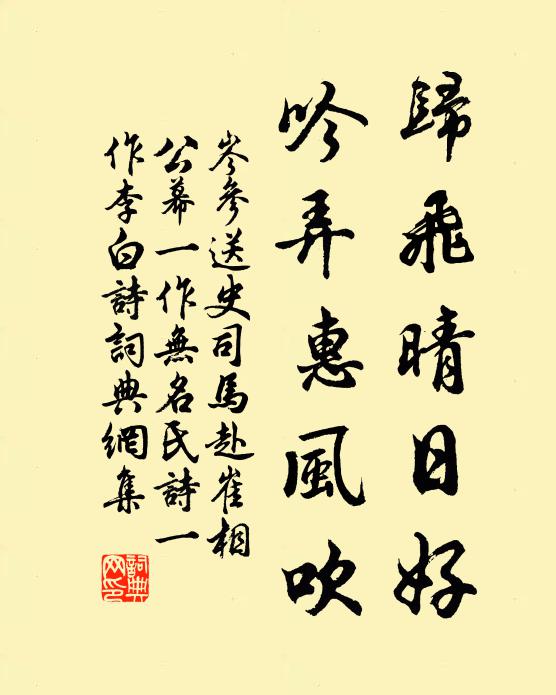 歸飛晴日好
吟弄惠風吹
岑參送史司馬赴崔相
公幕一作無名氏詩一
作李白詩詞典網集
詞典
网印